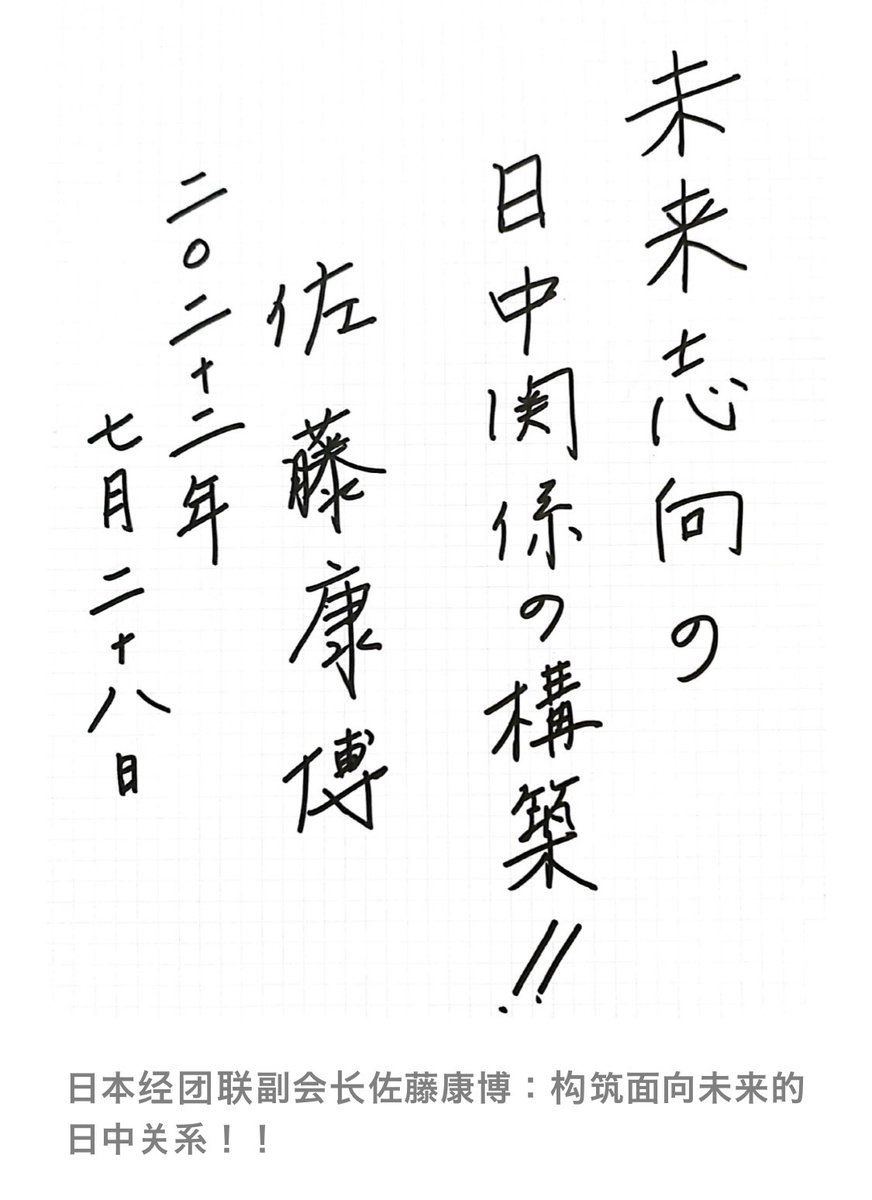 未来志向の
日中関係の構築!!
佐藤康博
二〇二十二年
七月二十八日
日本经团联副会长佐藤康博：构筑面向未来的
日中关系！！